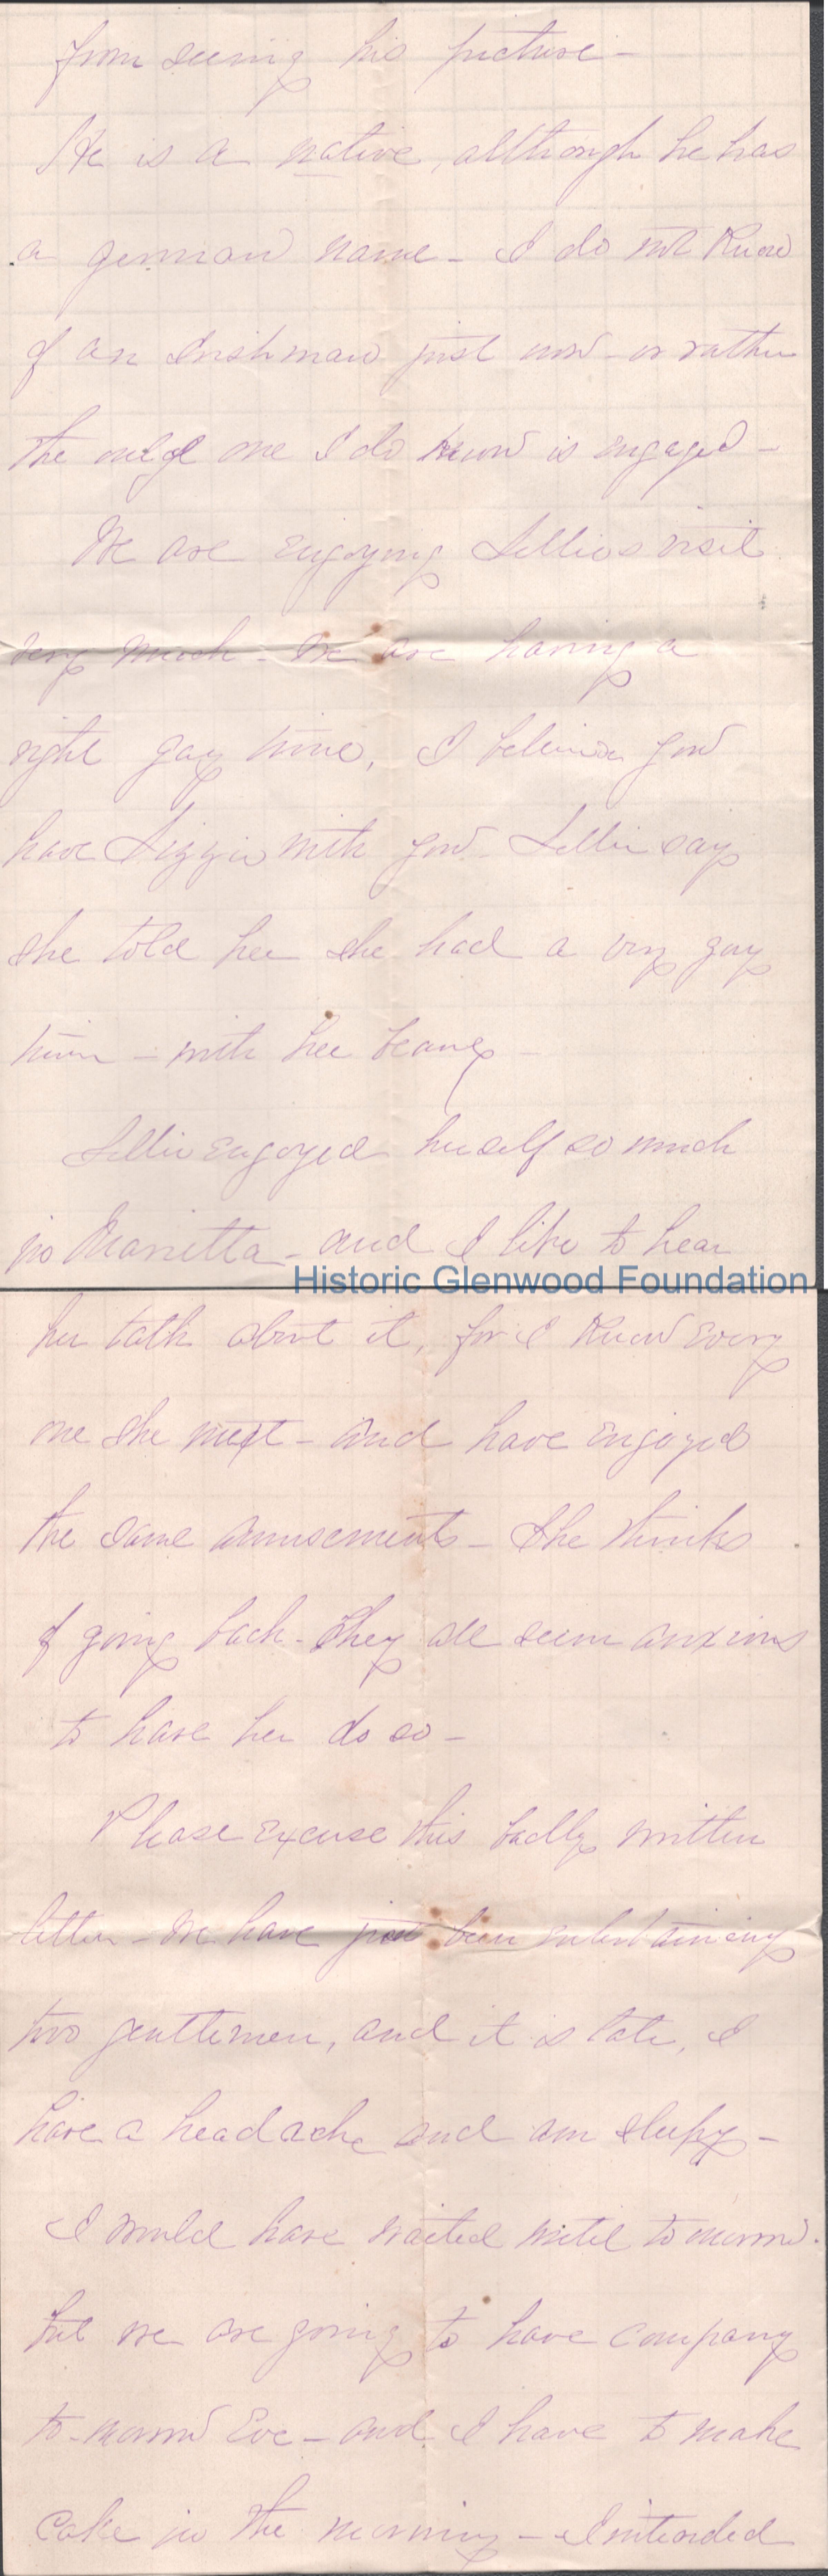 from seeing his picture -
He is a native, although he has
a german name - I do not know
of an Irishman just now - or rather
the only one I do know is engaged -
We are enjoying Lillies visit
very much - We are having a
right gay time, I believe you
have Lizzie with you - Lillie says
she told her she had a very gay
time - with her beaux -
Lillie enjoyed herself so much
in Marietta - and I like to hear
Historic Glenwood Foundation
her talk about it, for I know every
one she met - and have enjoyed
the same amusements - She thinks
of going back - They all seem anxious
to have her do so -
Please excuse this badly written
letter - We have just been entertaining
two gentlemen, and it is late, I
have a headache and am sleepy -
I would have waited until tomorrow.
but we are going to have company
to-morrow Eve - and I have to make
cake in the morning - I intended